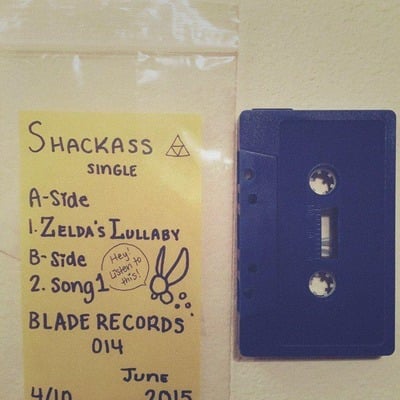 SHACKASS
SINGLE
A-Side
1. ZELDA'S LULLABY
B-Side
2. Song 1
Hey!
Listen to
this!
BLADE RECORDS
014
June
4/10 2015